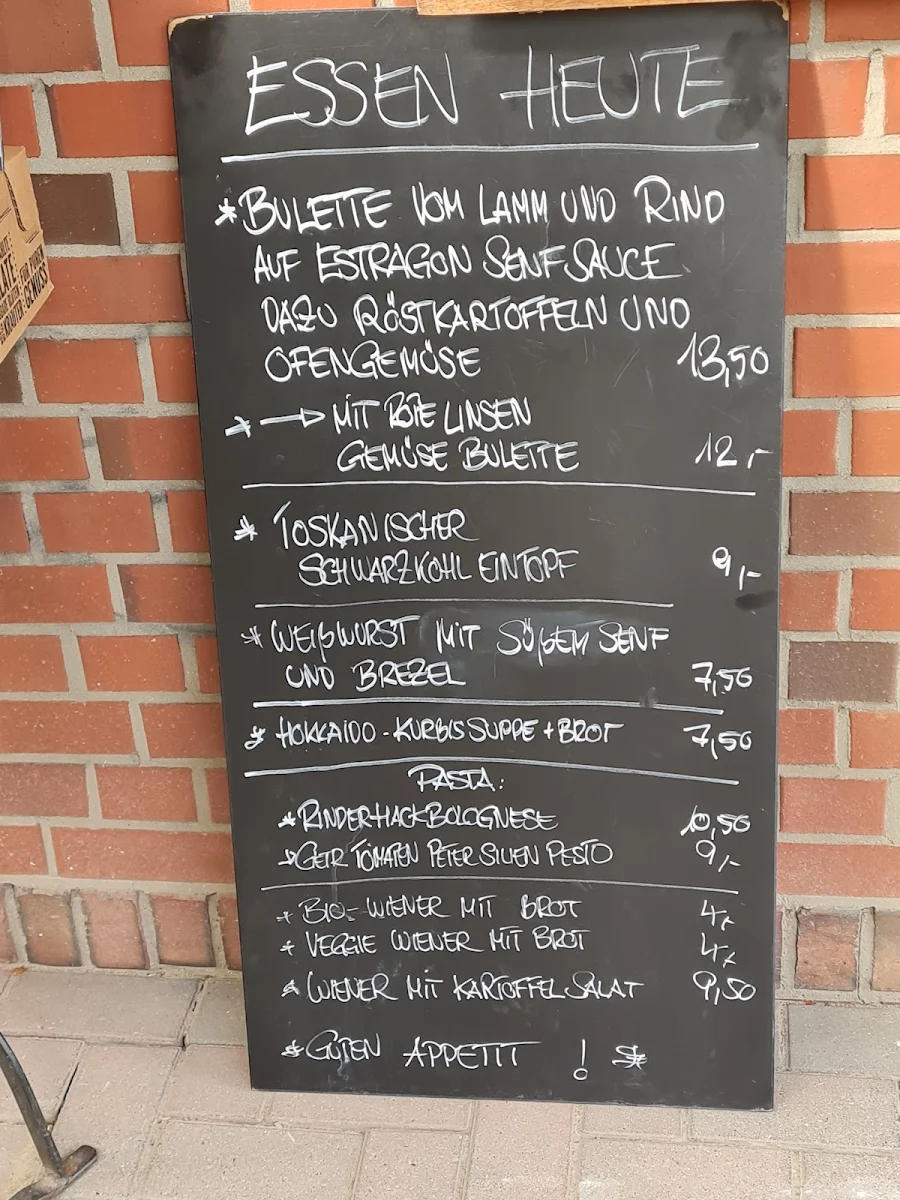 ESSEN HEUTE
* BULETTE VOM LAMM UND RIND
AUF ESTRAGON SENFSAUCE
DAZU RÖSTKARTOFFELN UND
OFENGEMÜSE 13,50
* → MIT ROTE LINSEN
GEMÜSE BULETTE 12,-
* TOSKANISCHER
SCHWARZKOHL EINTOPF 9,-
* WEIßWURST MIT SÜßEM SENF
UND BREZEL 7,50
* HOKKAIDO-KÜRBISSUPPE + BROT 7,50
PASTA:
* RINDERHACKBOLOGNESE 10,50
* GETR TOMATEN PETERSILIEN PESTO 9,-
* BIO-WIENER MIT BROT 4,-
* VEGGIE WIENER MIT BROT 4,-
* WIENER MIT KARTOFFELSALAT 9,50
* GUTEN APPETIT ! *